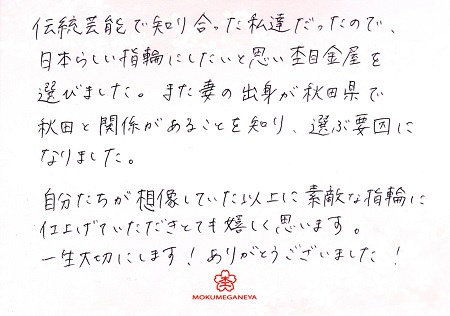 伝統芸能で知り合った私達だったので、
日本らしい指輪にしたいと思い杢目金屋を
選びました。また妻の出身が秋田県で
秋田と関係があることを知り、選ぶ要因に
なりました。
自分たちが想像していた以上に素敵な指輪に
仕上げていただきとても嬉しく思います。
一生大切にします！ありがとうございました！
杢
MOKUMEGANEYA